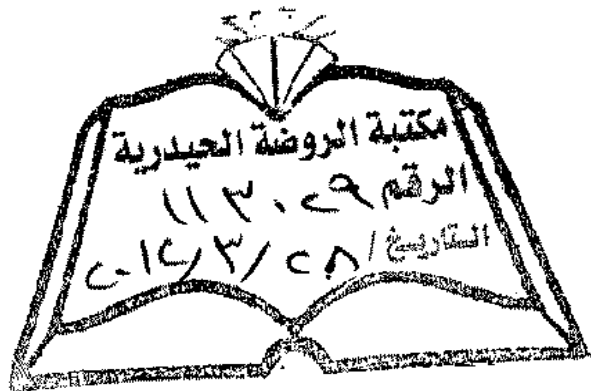 مكتبة الروضة الحيدرية
الرقم ١١٣٠٢٩
التاريخ / ٢٨ / ٣ / ٢٠١٢